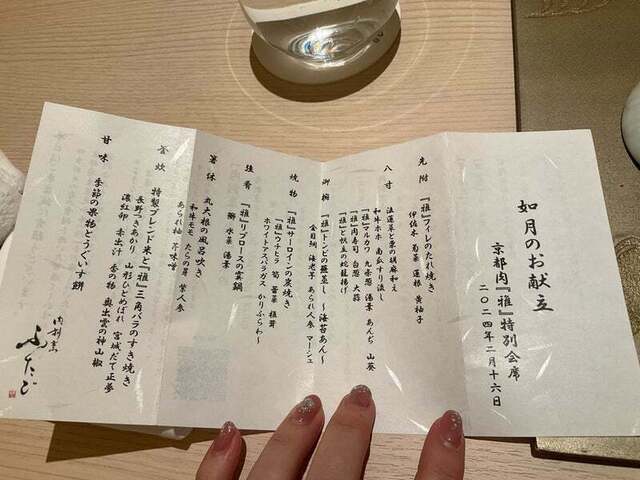 如月のお献立
京都肉『雅』特別会席
二〇二四年二月十六日
先附
『雅』フィレのたれ焼き
伊佐木 菊菜 蓮根 黄柚子
八寸
法蓮草と栗の胡麻和え
和牛ホホ 南瓜すり流し
『雅』マルカワ 九条葱 湯葉 あんぢ 山葵
『雅』肉寿司 白葱 大蒜
『雅』と帆立の蛇籠揚げ
御椀
『雅』トンビの蕪蒸し 〜海苔あん〜
金目鯛 海老子 あられ人参 マーシュ
焼物
『雅』サーロインの炭焼き
『雅』ウチヒラ 筍 蕾菜 椎茸
ホワイトアスパラガス かりふらわ〜
強肴
『雅』リブロースの雲鍋
鰤 水菜 湯葉
箸休
丸大根の風呂吹き
和牛モモ たらの芽 紫人参
あられ柚 芹味噌
釜炊
特製ブレンド米と『雅』三角バラのすき焼き
長野つきあかり 山形ひとめぼれ 宮城だて正夢
濃紅卵 赤出汁 香の物 奥出雲の神山椒
甘味
季節の果物とうぐいす餅
肉割烹
ふたご